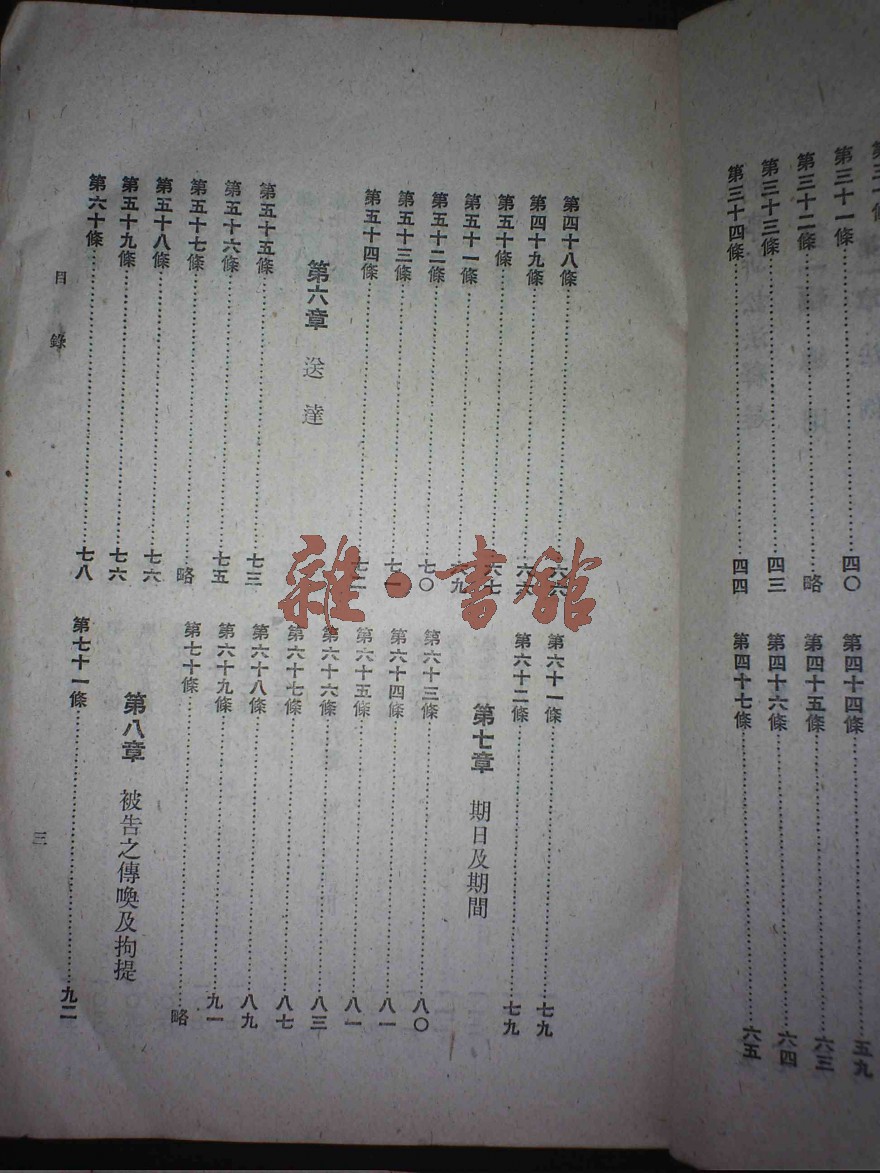 第三十一條……四〇
第三十二條……略
第三十三條……四三
第三十四條……四四
第四十四條……五九
第四十五條……六三
第四十六條……六四
第四十七條……六五
第四十八條……六六
第四十九條……六
第五十條……六七
第五十一條……六九
第五十二條……七〇
第五十三條……七一
第五十四條……七二
第六章 送達
第五十五條……七三
第五十六條……七五
第五十七條……略
第五十八條……七六
第五十九條……七六
第六十條……七八
第六十一條……七九
第六十二條……七九
第七章 期日及期間
第六十三條……八〇
第六十四條……八一
第六十五條……八一
第六十六條……八三
第六十七條……八七
第六十八條……八九
第六十九條……九一
第七十條……略
第八章 被告之傳喚及拘提
第七十一條……九二
目錄
三
雜·書館